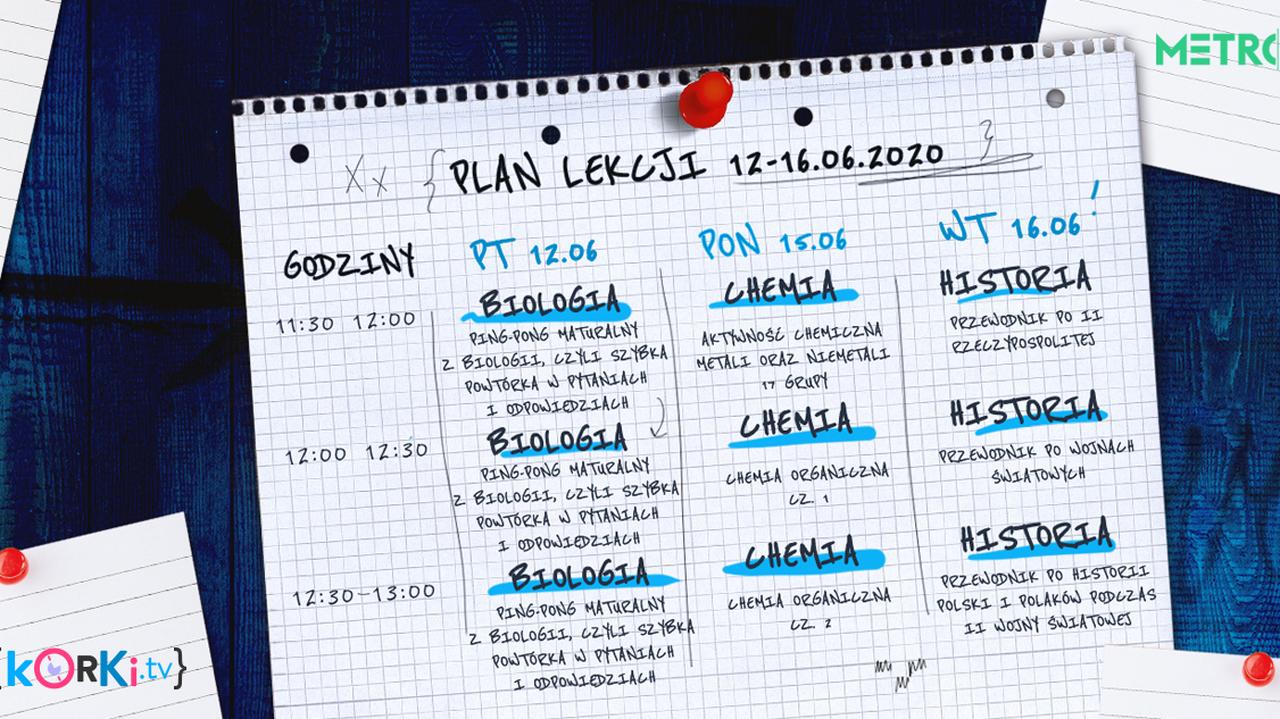 METRO
Xx { PLAN LEKCJI 12-16.06.2020 }
GODZINY
PT 12.06
PON 15.06
WT 16.06!
11:30 12:00
BIOLOGIA
PING-PONG MATURALNY
Z BIOLOGII, CZYLI SZYBKA
POWTÓRKA W PYTANIACH
I ODPOWIEDZIACH
CHEMIA
AKTYWNOŚĆ CHEMICZNA
METALI ORAZ NIEMETALI
17 GRUPY
HISTORIA
PRZEWODNIK PO II
RZECZYPOSPOLITEJ
12:00 12:30
BIOLOGIA
PING-PONG MATURALNY
Z BIOLOGII, CZYLI SZYBKA
POWTÓRKA W PYTANIACH
I ODPOWIEDZIACH
CHEMIA
CHEMIA ORGANICZNA
CZ. 1
HISTORIA
PRZEWODNIK PO WOJNACH
ŚWIATOWYCH
12:30-13:00
BIOLOGIA
PING-PONG MATURALNY
Z BIOLOGII, CZYLI SZYBKA
POWTÓRKA W PYTANIACH
I ODPOWIEDZIACH
CHEMIA
CHEMIA ORGANICZNA
CZ. 2
HISTORIA
PRZEWODNIK PO HISTORII
POLSKI I POLAKÓW PODCZAS
II WOJNY ŚWIATOWEJ
{kORKi.tv}